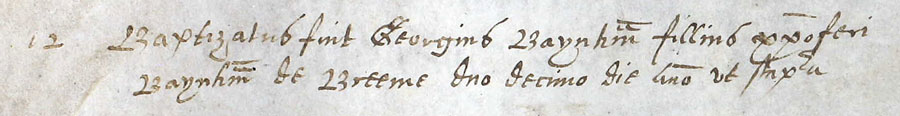 12 Baptizatus fuit Georgius Baynhm fillius xpoferi
Baynhm de Breeme duo decimo die Ano ut supra